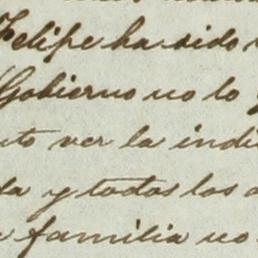 Felipe ha sido
Gobierno no lo
ver la indi
da y todos los
familia no